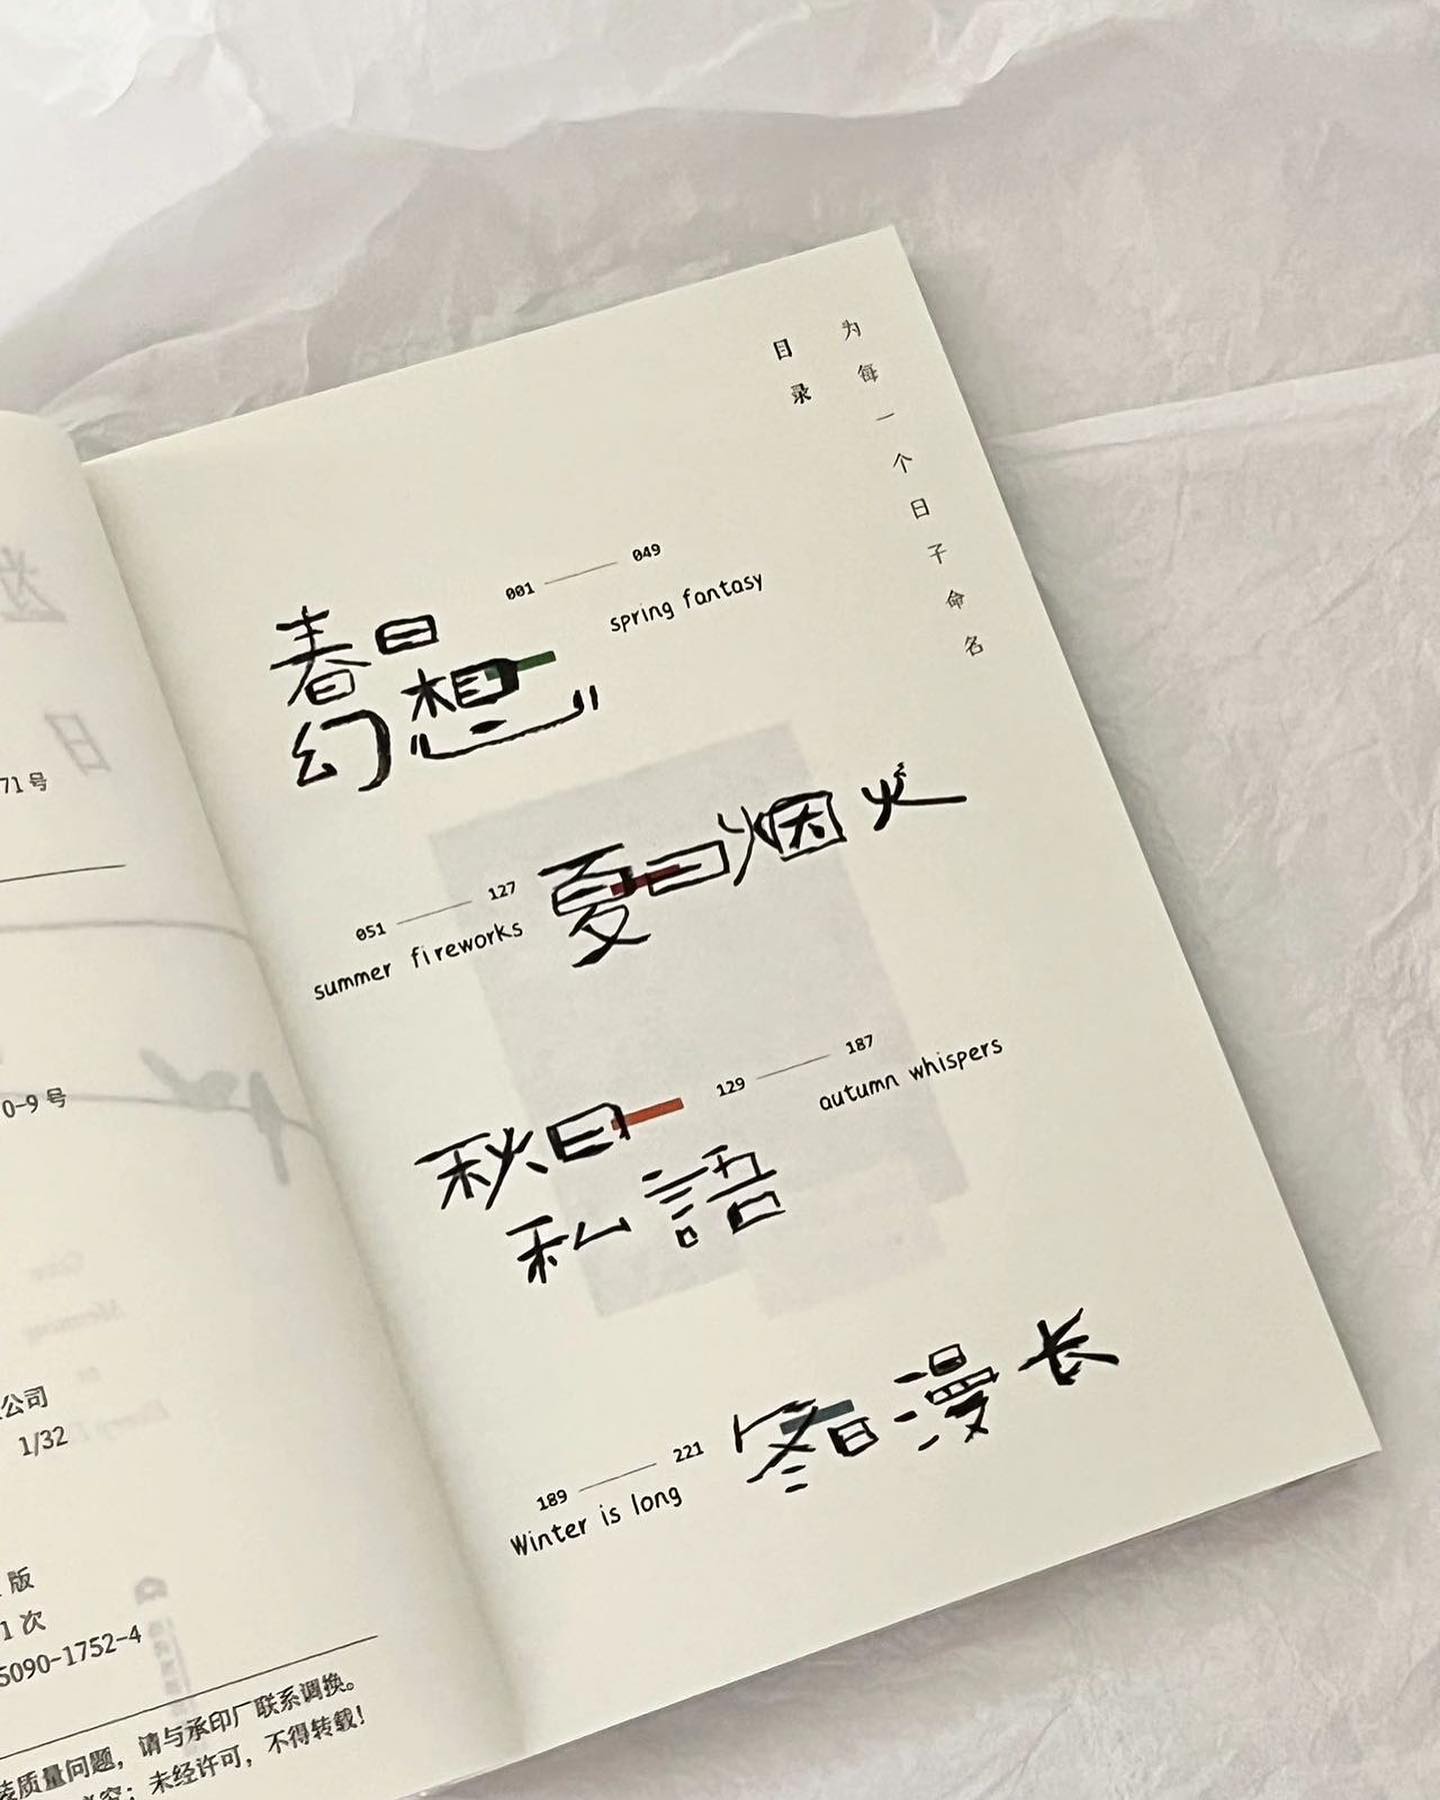 71号
0-9号
公司
1/32
版
1次
5090-1752-4
装质量问题，请与承印厂联系调换。
必究；未经许可，不得转载！
为每一个日子命名
目录
001 049
spring fantasy
春日
幻想
051 127
summer fireworks
夏日烟火
129 187
autumn whispers
秋日
私語
189 221
Winter is long
冬日漫长